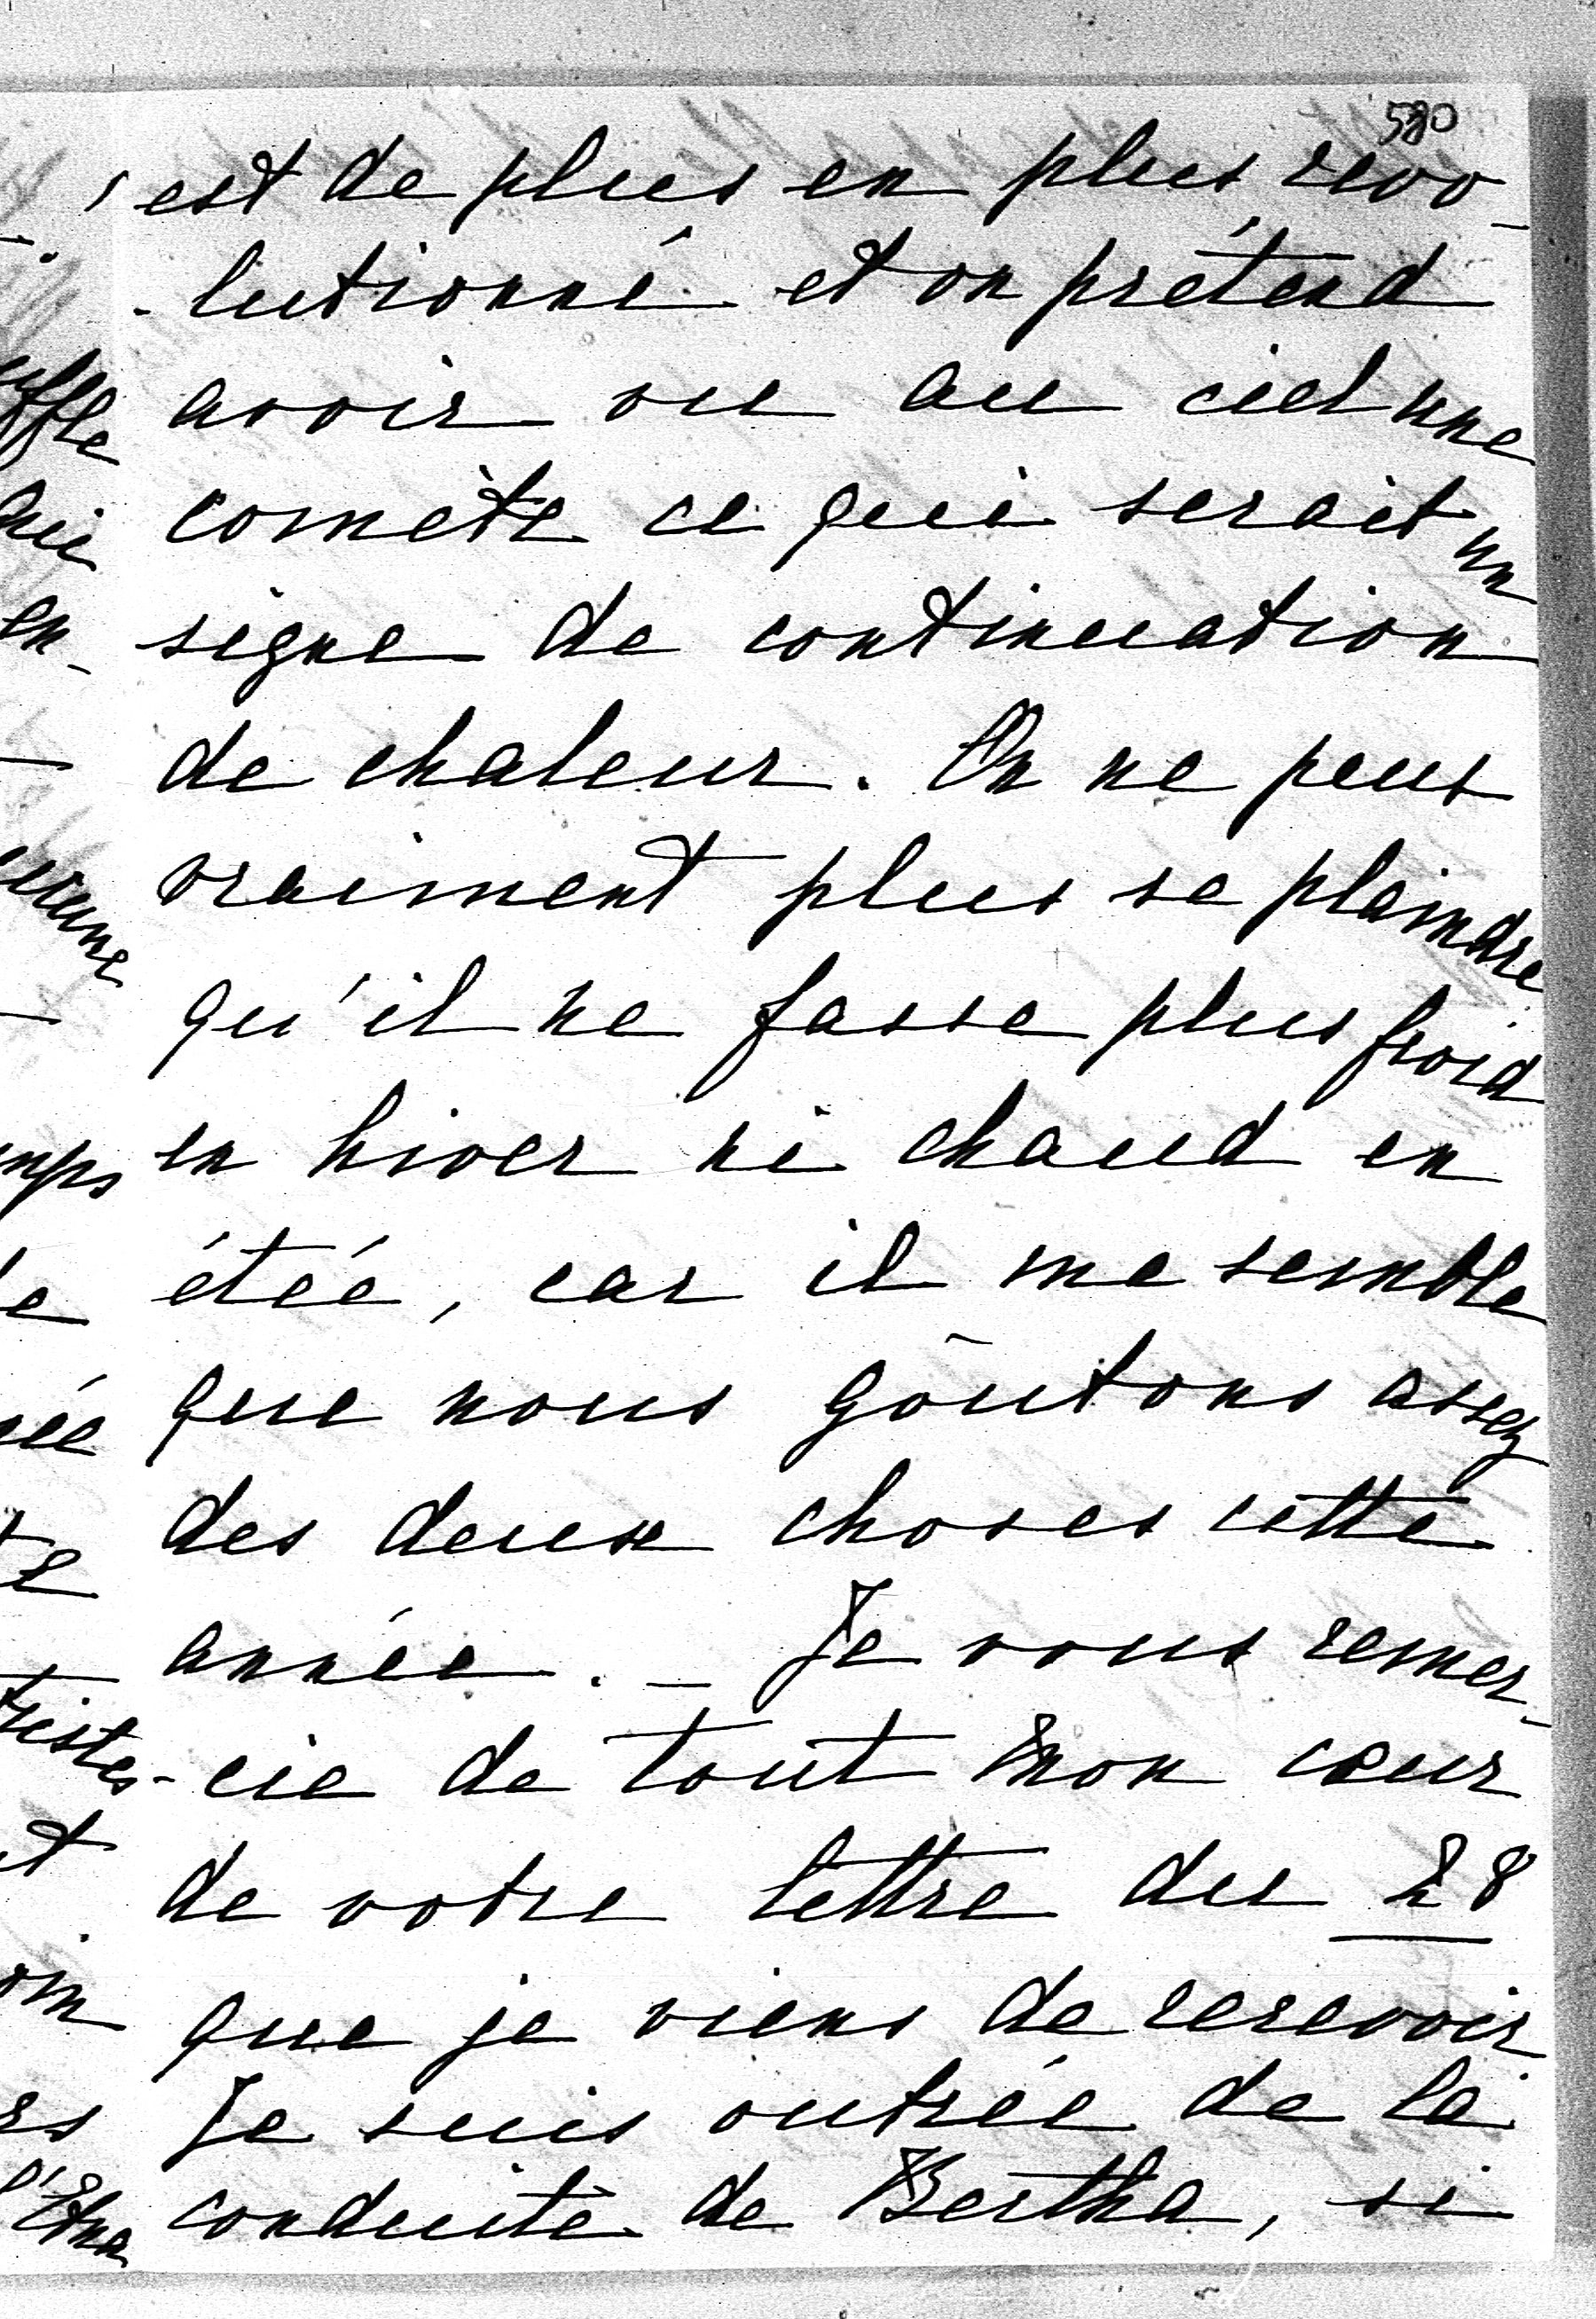 580
est de plus en plus revo-
-lutionné et on prétend
avoir vu au ciel une
comète ce qui serait un
signe de continuation
de chaleur. On ne peut
vraiment plus se plaindre
qu'il ne fasse plus froid
en hiver ni chaud en
étée, car il me semble
que nous goûtons assez
des deux choses cette
année. _ Je vous remer-
-cie de tout mon cœur
de votre lettre du 28
que je viens de recevoir
Je suis outrée de la
conduite de Bertha, si